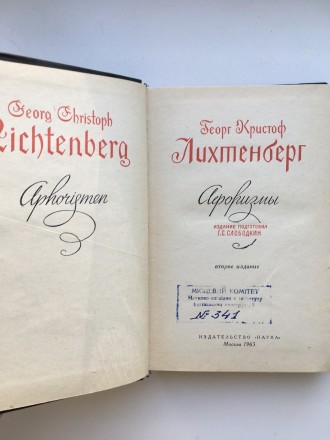 Georg Christoph
Lichtenberg
Aphorismen
Георг Кристоф
Лихтенберг
Афоризмы
ИЗДАНИЕ ПОДГОТОВИЛ
Г.С. СЛОБОДКИН
второе издание
КОМИТЕТ
№ 341
ИЗДАТЕЛЬСТВО «НАУКА»
Москва 1965